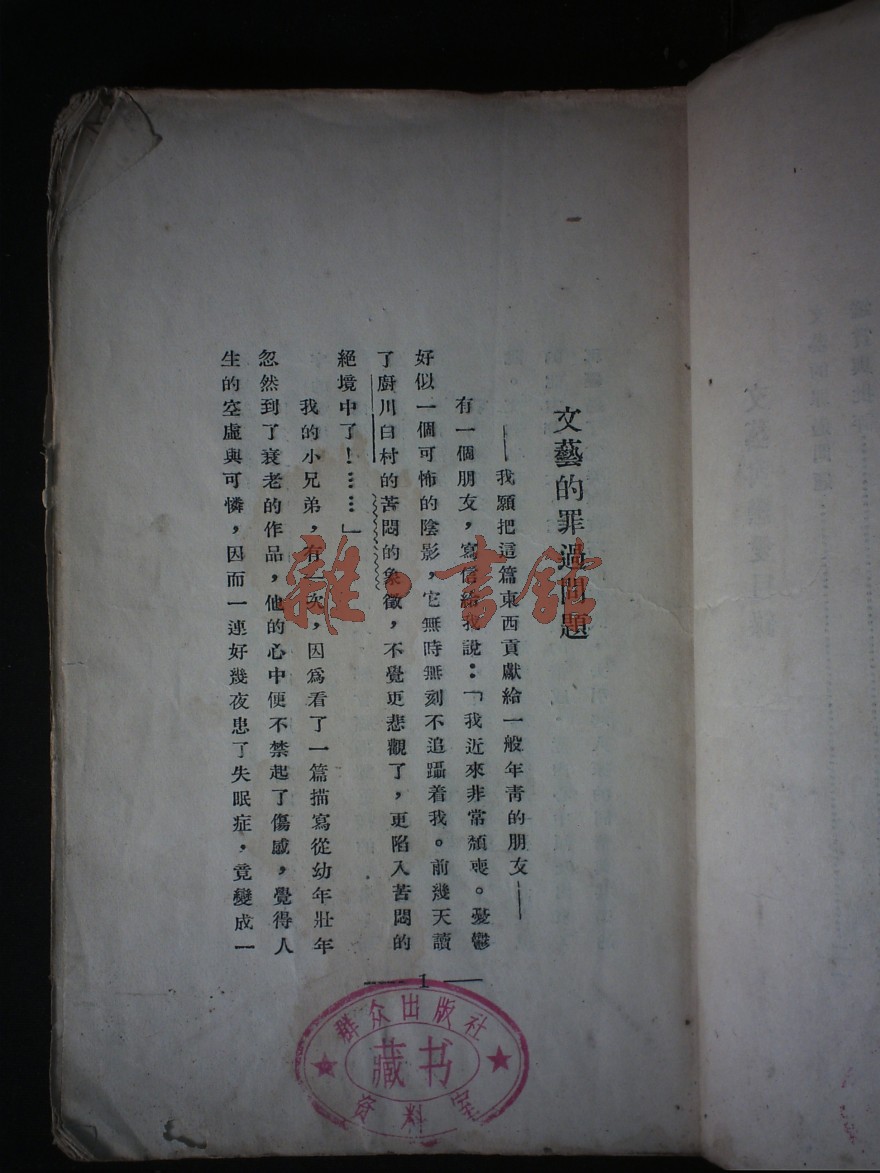 文藝的罪過問題
——我願把這篇東西貢獻給一般年靑的朋友——
有一個朋友，寫信給我說：「我近來非常頹喪。憂鬱
好似一個可怖的陰影，它無時無刻不追躡着我。前幾天讀
了廚川白村的苦悶的象徵，不覺更悲觀了，更陷入苦悶的
絕境中了！……」
我的小兄弟，有一次，因爲看了一篇描寫從幼年壯年
忽然到了衰老的作品，他的心中便不禁起了傷感，覺得人
生的空虛與可憐，因而一連好幾夜患了失眠症，竟變成一
—— 1 ——
雜·書館
群众出版社
藏书
资料室